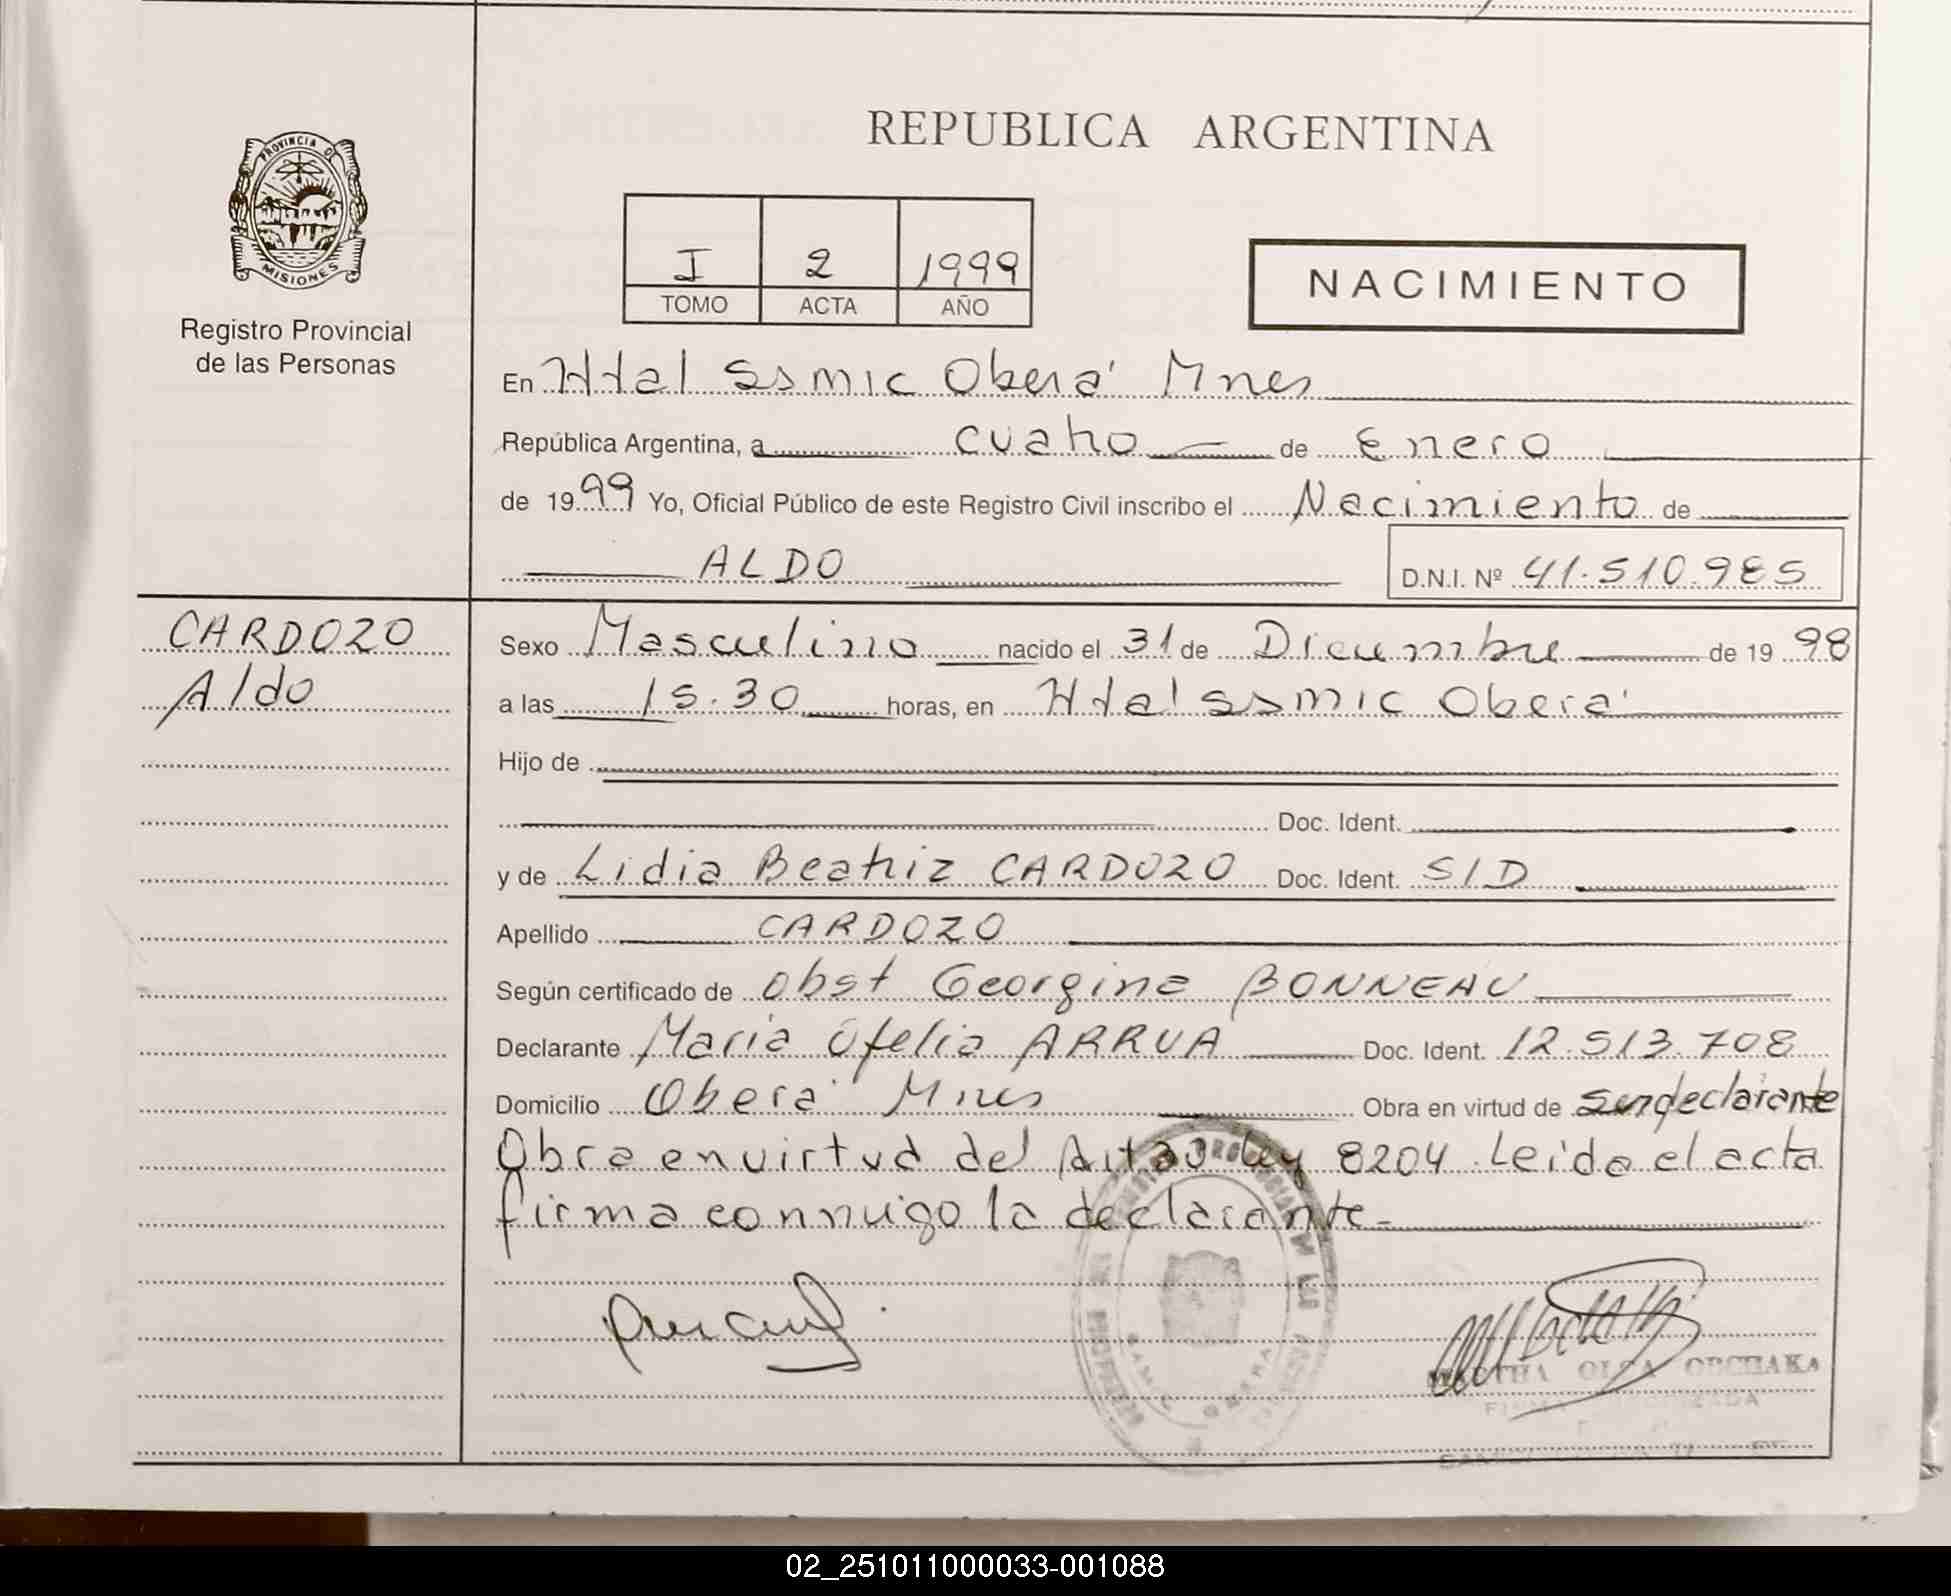 REPUBLICA ARGENTINA
PROVINCIA DE
MISIONES
Registro Provincial
de las Personas
I 2 1999
TOMO ACTA AÑO
NACIMIENTO
En Htal SSMIC Oberá Mnes
República Argentina, a cuatro de Enero
de 1999 Yo, Oficial Público de este Registro Civil inscribo el Nacimiento de
ALDO D.N.I. Nº 41.510.985
CARDOZO
Aldo
Sexo Masculino nacido el 31 de Diciembre de 1998
a las 15.30 horas, en Htal SSMIC Oberá
Hijo de
Doc. Ident.
y de Lidia Beatriz CARDOZO Doc. Ident. S/D
Apellido CARDOZO
Según certificado de Obst Georgina BONNEAU
Declarante Maria Ofelia ARRUA Doc. Ident. 12.513.708
Domicilio Oberá Mnes Obra en virtud de ser declarante
Obra en virtud del Ley 8204. Leida el acta
firma conmigo la declarante.
MARTHA OLGA ORCHAKA
02_251011000033-001088